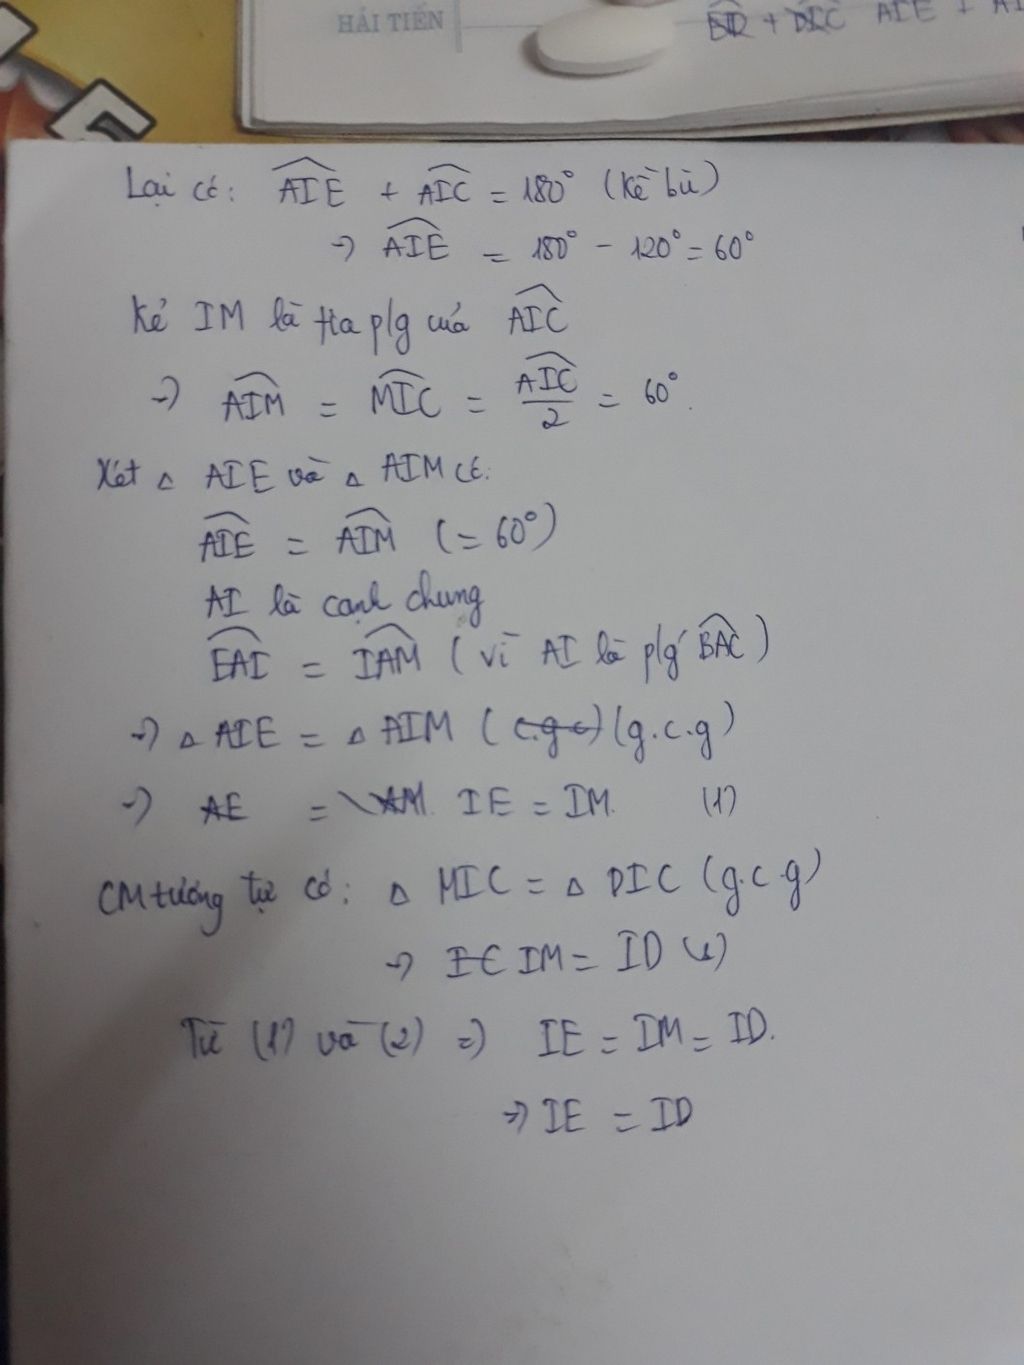 HẢI TIẾN
AIE + AI
Lại có: AIE + AIC = 180° (kề bù)
→ AIE = 180° - 120° = 60°
Kẻ IM là tia p/g của AIC
→ AIM = MIC = AIC/2 = 60°.
Xét Δ AIE và Δ AIM có:
AIE = AIM (= 60°)
AI là cạnh chung
EAI = IAM (vì AI là p/g BAC)
→ Δ AIE = Δ AIM (c.g.c) (g.c.g)
→ AE = AM. IE = IM. (1)
CM tương tự có: Δ MIC = Δ DIC (g.c.g)
→ IC IM = ID (2)
Từ (1) và (2) => IE = IM = ID.
→ IE = ID